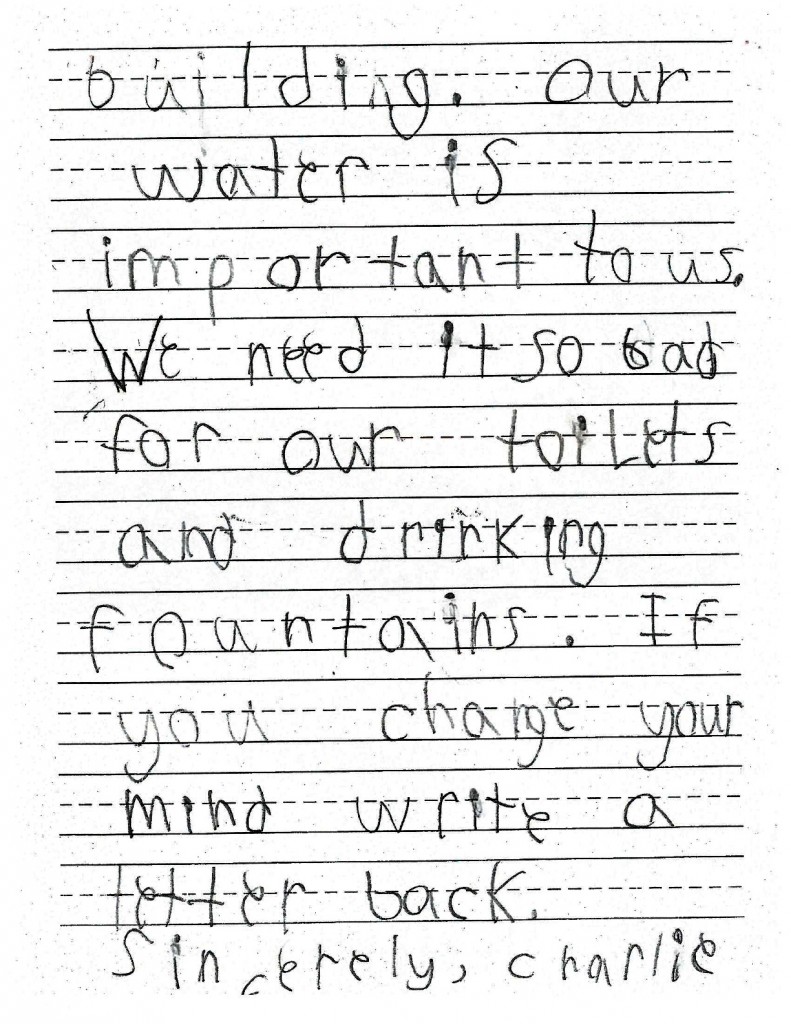 building. Our
water is
important to us.
We need it so bad
for our toilets
and drinking
fountains. If
you change your
mind write a
letter back.
Sincerely, charlie